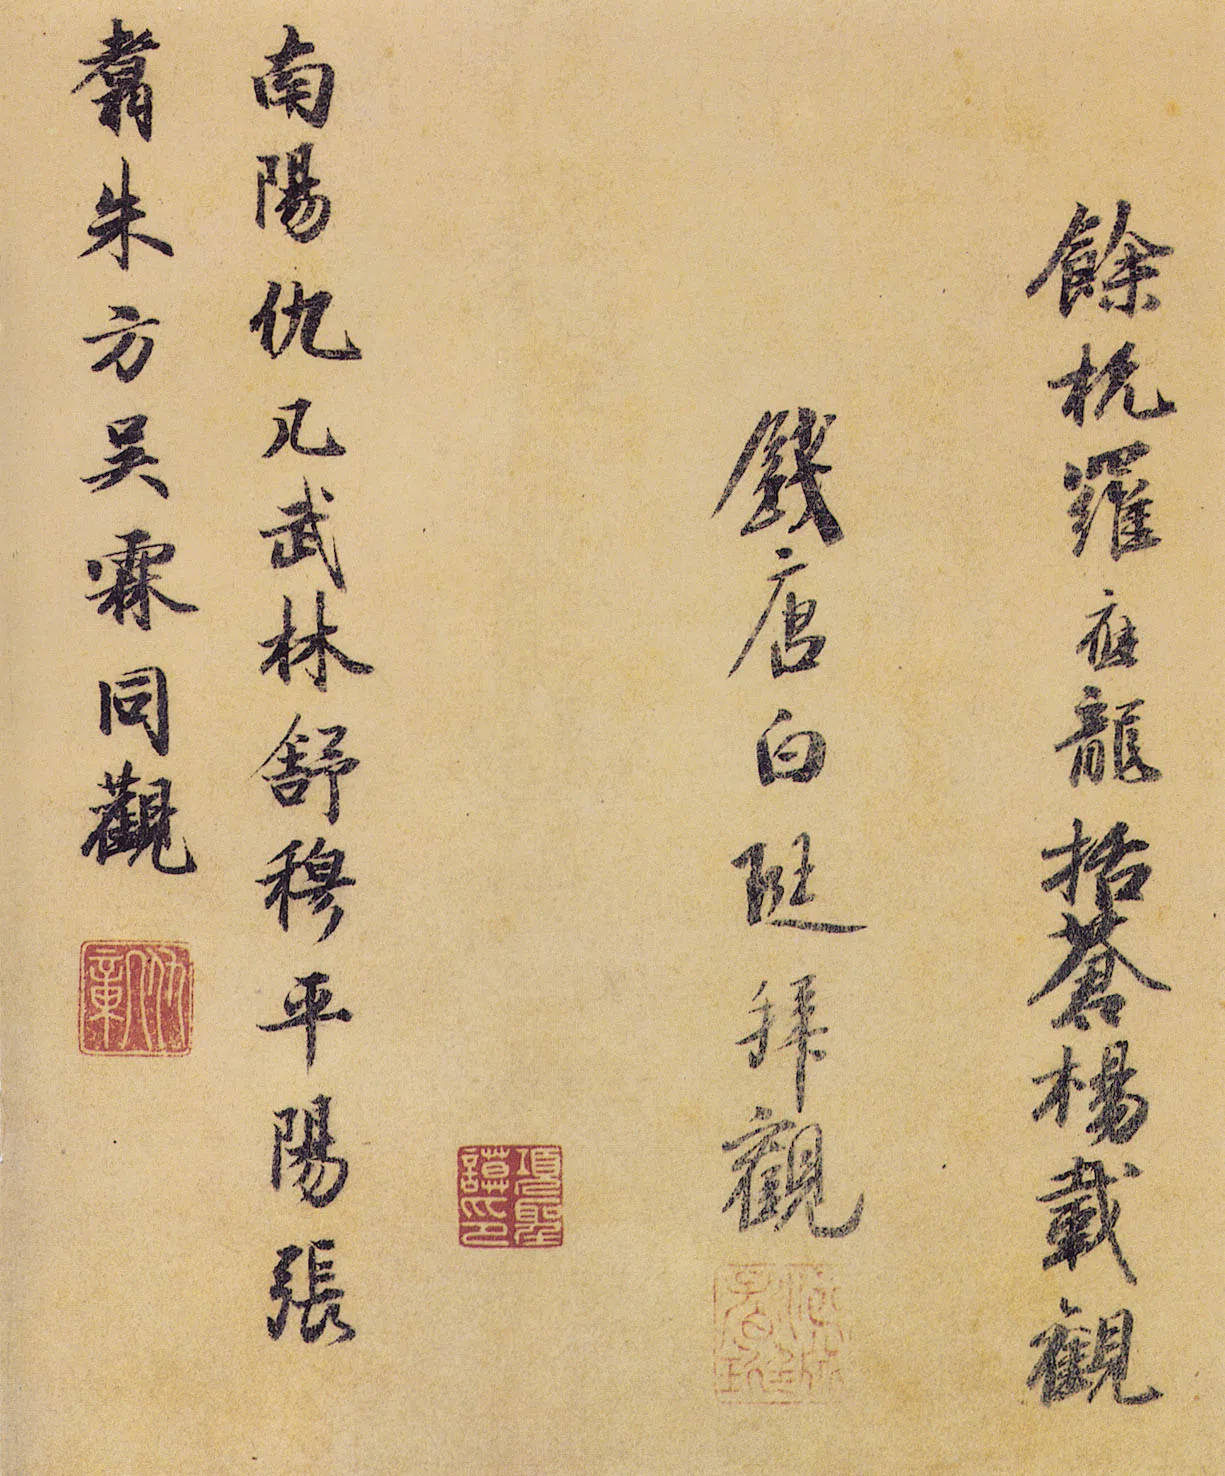 餘杭羅應龍括蒼楊載觀
錢唐白珽拜觀
項聖謨印
南陽仇凡武林舒穆平陽張
翥朱方吳霖同觀